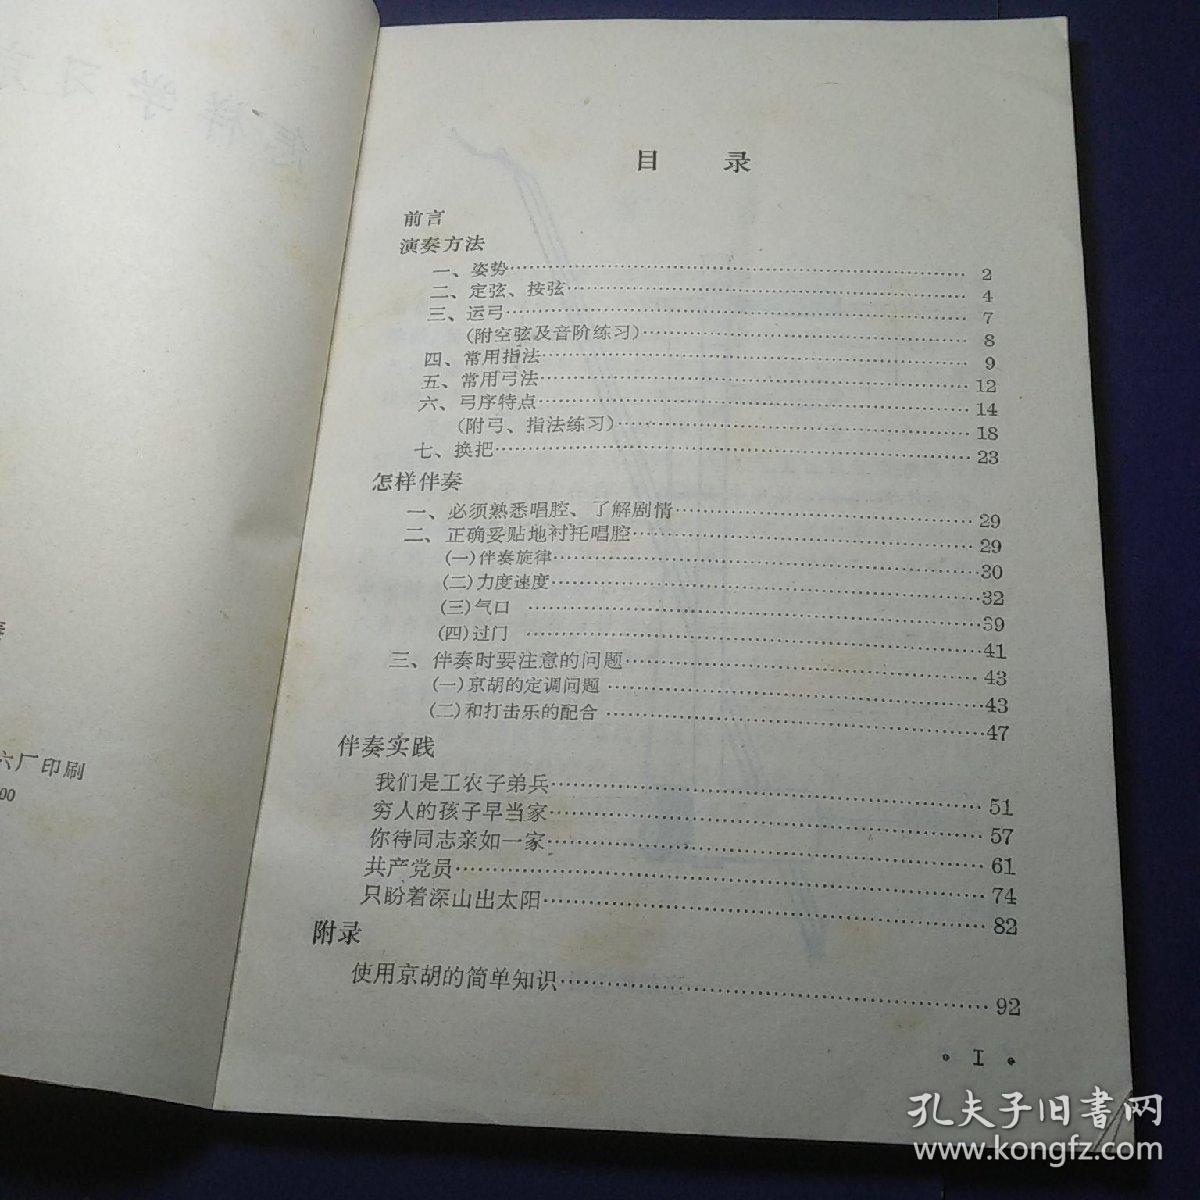 怎样学习京
六厂印刷
00
目 录
前言
演奏方法
一、姿势……2
二、定弦、按弦……4
三、运弓……7
(附空弦及音阶练习)……8
四、常用指法……9
五、常用弓法……12
六、弓序特点……14
(附弓、指法练习)……18
七、换把……23
怎样伴奏
一、必须熟悉唱腔、了解剧情……29
二、正确妥贴地衬托唱腔……29
(一)伴奏旋律……30
(二)力度速度……32
(三)气口……39
(四)过门……41
三、伴奏时要注意的问题……43
(一)京胡的定调问题……43
(二)和打击乐的配合……47
伴奏实践
我们是工农子弟兵……51
穷人的孩子早当家……57
你待同志亲如一家……61
共产党员……74
只盼着深山出太阳……82
附录
使用京胡的简单知识……92
• I •
孔夫子旧书网
www.kongfz.com